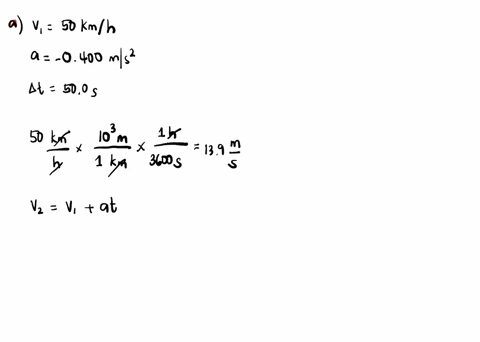 a) V₁ = 50 km/h
a = -0.400 m/s²
Δt = 50.0 s
50 km/h × 10³ m / 1 km × 1 h / 3600 s = 13.9 m/s
V₂ = V₁ + at